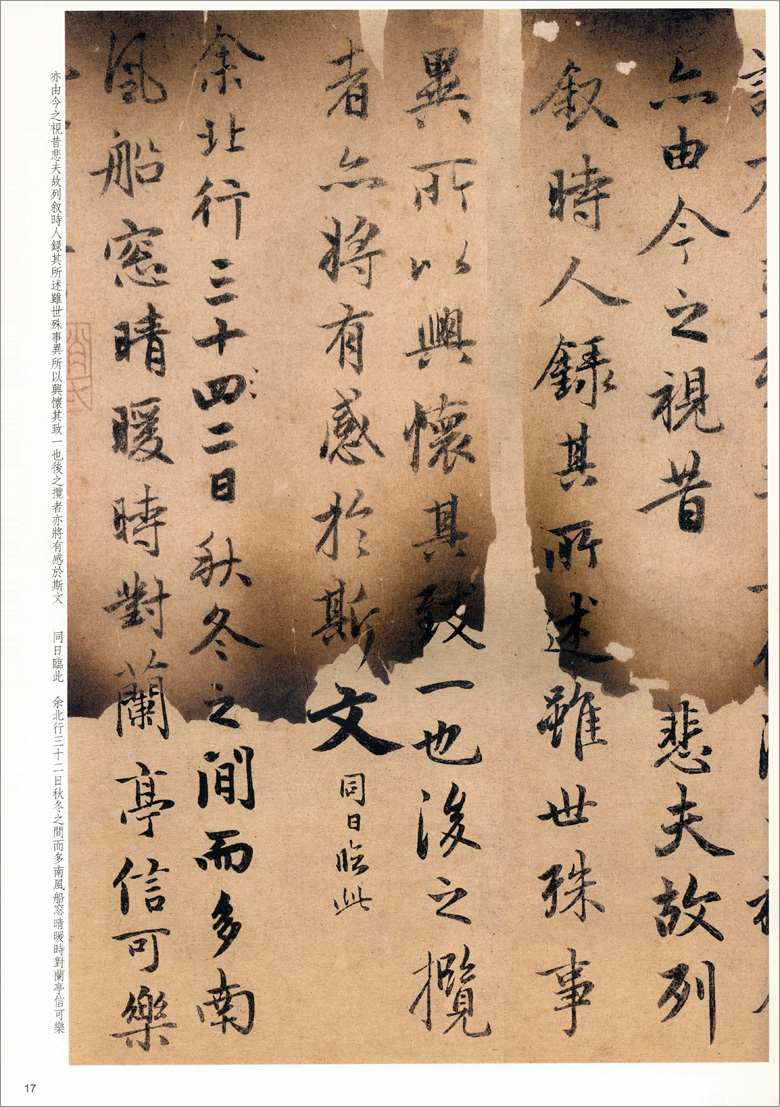 亦由今之視昔悲夫故列
叙時人録其所述雖世殊事
異所以興懷其致一也後之攬
者亦將有感於斯文
同日臨此
余北行三十四二日秋冬之間而多南
風船窓晴暖時對蘭亭信可樂
亦由今之視昔悲夫故列叙時人録其所述雖世殊事異所以興懷其致一也後之攬者亦將有感於斯文　同日臨此　余北行三十二日秋冬之間而多南風船窓晴暖時對蘭亭信可樂
17